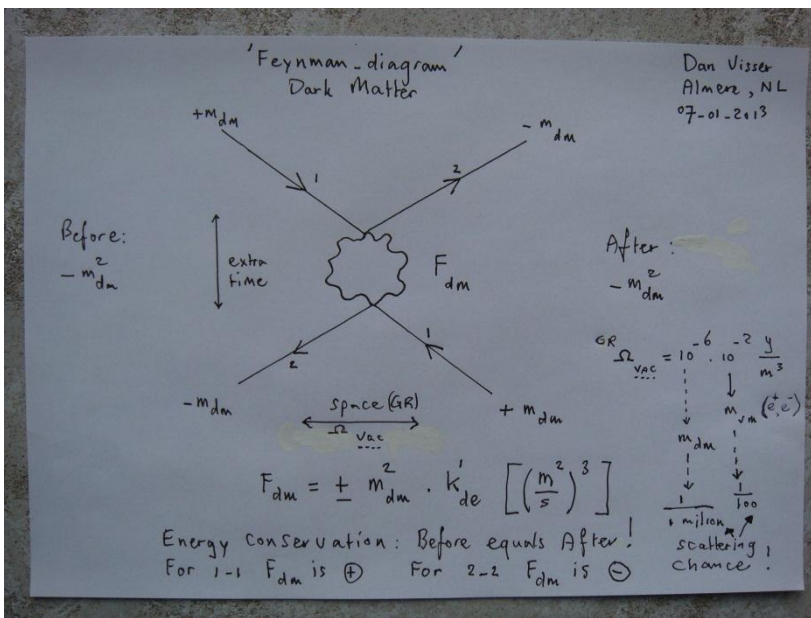 'Feynman-diagram'
Dark Matter
Dan Visser
Almere, NL
07-01-2013
+m dm
- m dm
1
2
Before:
- m² dm
extra
time
F dm
After:
- m² dm
GR Ω VAC = 10⁻⁶ . 10⁻² y/m³
m vm (e⁺,e⁻)
m dm
1/1 milion
1/100
scattering
chance!
2
1
- m dm
+ m dm
space (GR)
Ω vac
F dm = ± m² dm . k' de [(m²/s)³]
Energy conservation: Before equals After!
For 1-1 F dm is ⊕ For 2-2 F dm is ⊖